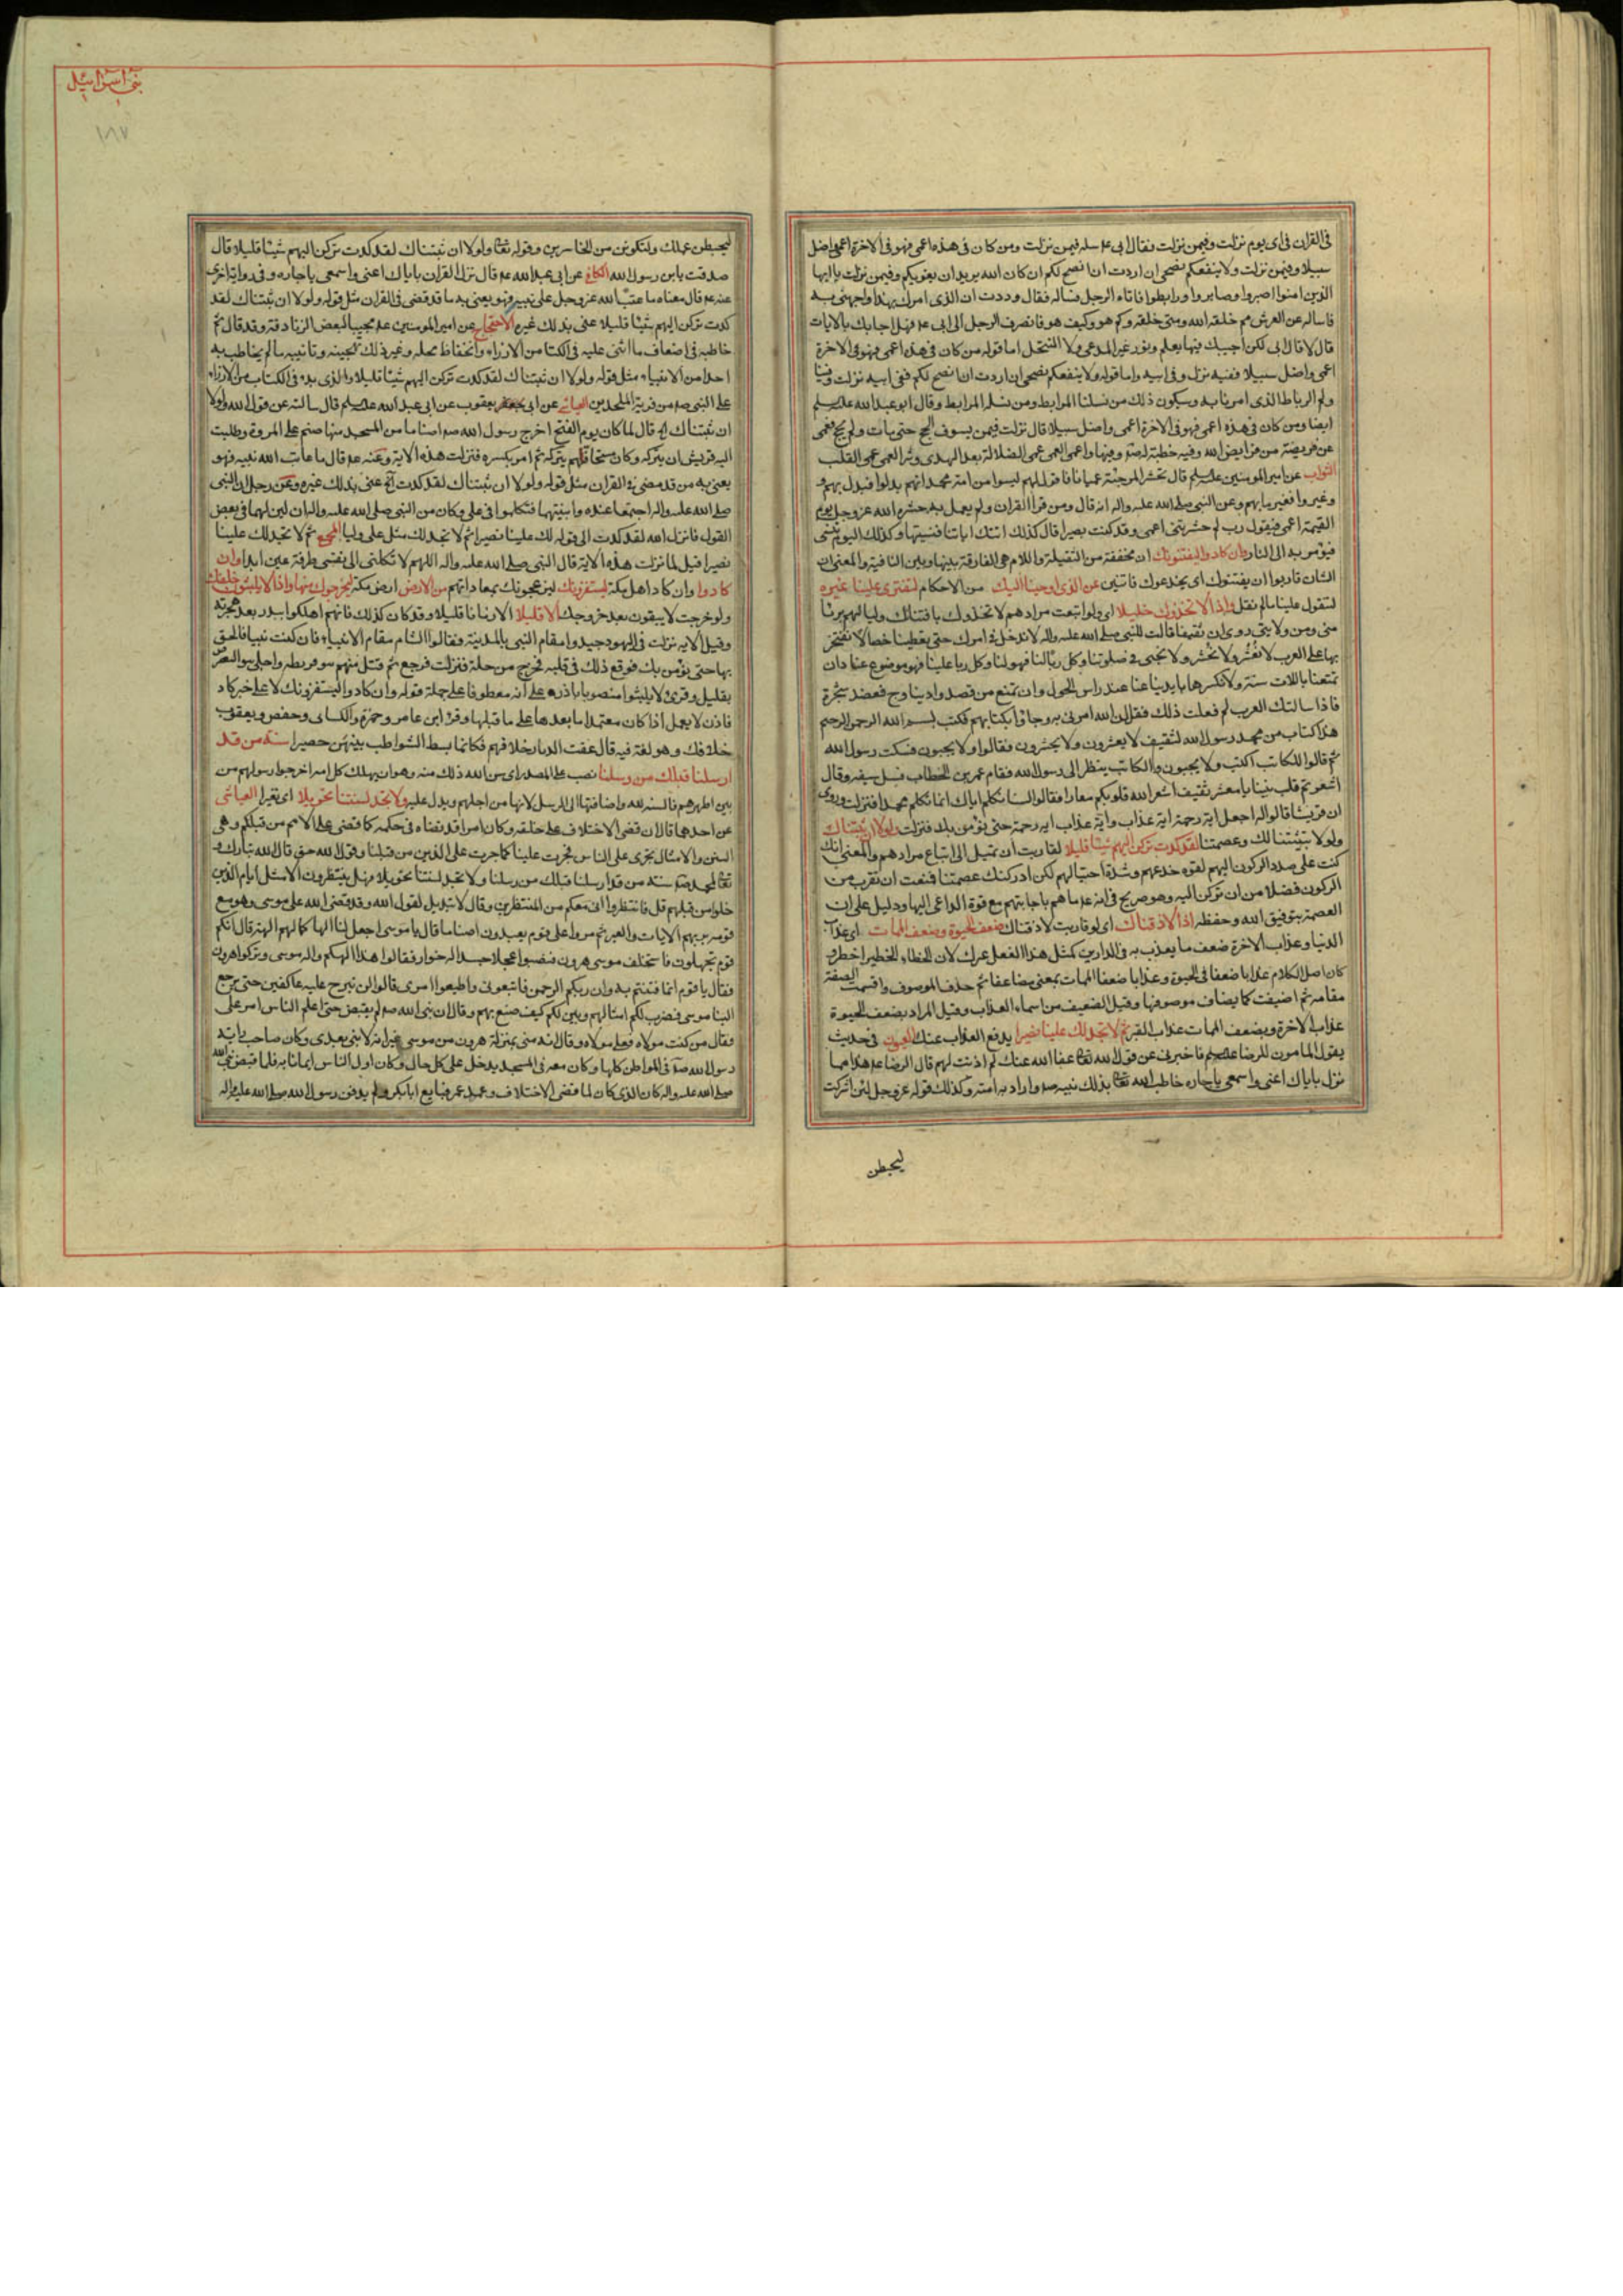 فى القران فى اى يوم نزلت وفيمن نزلت فقال ابى عم سله فيمن نزلت ومن كان فى هذه اعمى فهو فى الاخرة اعمى واضل
سبيلا وفيمن نزلت ولا ينفعكم نصحى ان اردت ان انصح لكم ان كان الله يريد ان يغويكم وفيمن نزلت يا ايها
الذين امنوا اصبروا وصابروا ورابطوا فاتاه الرجل فساله فقال وددت ان الذى امرك بهذا واجهنى به
فاساله عن العرش مم خلقه الله ومتى خلقه وكم هو وكيف هو فانصرف الرجل الى ابى عم فهل اجابك بالايات
قال لا قال ابى لكن اجيبك فيها بعلم ونور غير المدعى ولا المنتحل اما قوله من كان فى هذه اعمى فهو فى الاخرة
اعمى واضل سبيلا ففيه نزل وفى ابيه واما قوله ولا ينفعكم نصحى ان اردت ان انصح لكم ففى ابيه نزلت وفينا
ولم الرباط الذى امرنا به وسيكون ذلك من نسلنا المرابط ومن نسله المرابط وقال ابو عبد الله عليه السلم
ايضا ومن كان فى هذه اعمى فهو فى الاخرة اعمى واضل سبيلا قال نزلت فيمن يسوف الحج حتى مات ولم يحج فعمى
عن فريضة من فرايض الله وفيه خطبة لصتم وفيها واعمى العمى عمى الضلالة بعد الهدى وشر العمى عمى القلب
الثواب عن امير المومنين عليه السلم قال تحشر المرجئة عميانا
وغيروا فغير ما بهم وعن النبى صلى الله عليه واله انه قال ومن قرا القران ولم يعمل به حشره الله عز وجل يوم
القيمة اعمى فيقول رب لم حشرتنى اعمى وقد كنت بصيرا قال كذلك اتتك اياتنا فنسيتها وكذلك اليوم تنسى
فيؤمر به الى النار وان كادوا ليفتنونك ان مخففة من الثقيلة واللام هى الفارقة بينها وبين النافية والمعنى ان
الشان قاربوا ان يفتنوك اى يخدعوك فاتنين عن الذى اوحينا اليك من الاحكام لتفترى علينا غيره
لتقول علينا ما لم نقل واذا لاتخذوك خليلا اى ولو اتبعت مرادهم لاتخذوك بافتتانك وليا لهم بريئا
منى ومن ولايتى روى ان ثقيفا قالت للنبى صلى الله عليه واله لا ندخل فى امرك حتى يعطينا خصالا نفتخر
بها على العرب لا نعشر ولا نحشر ولا نجبى فى صلوتنا وكل ربا لنا فهو لنا وكل ربا علينا فهو موضوع عنا وان
تمتعنا باللات سنة ولا نكسرها بايدينا عنا عند راس الحول وان تمنع من قصد وادينا وج فعضد شجرة
فاذا سالتك العرب لم فعلت ذلك فقل ان الله امرنى به وجاؤا بكتابهم فكتب بسم الله الرحمن الرحيم
هذا كتاب من محمد رسول الله لثقيف لا يعشرون ولا يحشرون فقالوا ولا يجبون فسكت رسول الله
ثم قالوا للكاتب اكتب ولا يجبون والكاتب ينظر الى رسول الله فقام عمر بن الخطاب فسل سيفه وقال
اشعرتم قلب نبينا يا معشر ثقيف اشعر الله قلوبكم سعارا فقالوا لسنا نكلم اياك انما نكلم محمدا فنزلت وروى
ان قريشا قالوا له اجعل اية رحمة اية عذاب واية عذاب اية رحمة حتى نؤمن بك فنزلت ولولا ان ثبتناك
ولولا تثبيتنا لك وعصمتنا لقد كدت تركن اليهم شيئا قليلا لقاربت ان تميل الى اتباع مرادهم والمعنى انك
كنت على صدد الركون اليهم لقوة خدعهم وشدة احتيالهم لكن ادركتك عصمتنا فمنعت ان تقرب من
الركون فضلا من ان تركن اليه وهو صريح فى انه عم ما هم باجابتهم مع قوة الداعى اليها ودليل على ان
العصمة بتوفيق الله وحفظه اذا لاذقناك اى لو قاربت لاذقناك ضعف الحيوة وضعف الممات اى عذاب
الدنيا وعذاب الاخرة ضعف ما يعذب به فى الدارين كمثل هذا الفعل غيرك لان الخطاء الخطير اخطر و
كان اصل الكلام عذابا ضعفا فى الحيوة وعذابا ضعفا الممات بمعنى مضاعفا ثم حذف الموصوف واقيمت الصفة
مقامه ثم اضيفت كما يضاف موصوفها وقيل الضعيف من اسماء العذاب وقيل المراد بضعف الحيوة
عذاب الاخرة وبضعف الممات عذاب القبر ثم لا تجد لك علينا نصيرا يدفع العذاب عنك العيون فى حديث
يقول المامون للرضا عليه السلم فاخبرنى عن قول الله تعالى عفا الله عنك لم اذنت لهم قال الرضا عم هذا مما
نزل باياك اعنى واسمعى يا جاره خاطب الله تعالى بذلك نبيه صم واراد به امته وكذلك قوله عز وجل لئن اشركت
ليحبطن
بنى اسرائيل
١٨٧
ليحبطن عملك ولتكونن من الخاسرين وقوله تعالى ولولا ان ثبتناك لقد كدت تركن اليهم شيئا قليلا قال
صدقت يا بن رسول الله الكافى عن ابى عبد الله عم قال نزل القران باياك اعنى واسمعى يا جاره وفى رواية اخرى
عنه عم قال معناه ما عتب الله عز وجل على نبيه فهو يعنى به ما قد قضى فى القران مثل قوله ولولا ان ثبتناك لقد
كدت تركن اليهم شيئا قليلا عنى بذلك غيره الاحتجاج عن امير المومنين عم مجيبا لبعض الزنادقة وقد قال ثم
خاطبه فى اضعاف ما اثنى عليه فى الكتاب من الازراء وانخفاظ محله وغير ذلك تهجينه وتانيبه ما لم يخاطب به
احدا من الانبياء مثل قوله ولولا ان ثبتناك لقد كدت تركن اليهم شيئا قليلا والذى بدء فى الكتاب من الازراء
على النبى صم من فرية الملحدين العياشى عن ابى يعقوب عن ابى عبد الله عليه السلم قال سالته عن قول الله ولولا
ان ثبتناك اه قال لما كان يوم الفتح اخرج رسول الله صم اصناما من المسجد منها صنم على المروة وطلبت
اليه قريش ان يتركه وكان مستحيا فهم بتركه ثم امر بكسره فنزلت هذه الاية وعنه عم قال ما عاتب الله نبيه فهو
يعنى به من قد مضى فى القران مثل قوله ولولا ان ثبتناك لقد كدت اه عنى بذلك غيره وعن رجل ان النبى
صلى الله عليه واله اجتمعا عنده وابنتهما فتكلموا فى على وكان من النبى صلى الله عليه واله ان لين لهما فى بعض
القول فانزل الله لقد كدت الى قوله لك علينا نصيرا ثم لا تجد لك مثل على وليا المجمع ثم لا تجد لك علينا
نصيرا قيل لما نزلت هذه الاية قال النبى صلى الله عليه واله اللهم لا تكلنى الى نفسى طرفة عين ابدا وان
كادوا وان كاد اهل مكة ليستفزونك ليزعجونك بمعاداتهم من الارض ارض مكة ليخرجوك منها واذا لا يلبثون خلفك
ولو خرجت لا يبقون بعد خروجك الا قليلا الا زمانا قليلا وقد كان كذلك فانهم اهلكوا ببدر بعد هجرته
وقيل الاية نزلت فى اليهود حسدوا مقام النبى بالمدينة فقالوا الشام مقام الانبياء فان كنت نبيا فالحق
بها حتى نؤمن بك فوقع ذلك فى قلبه فخرج من حلة فنزلت فرجع ثم قتل منهم بنو قريظة واجلى بنو النضير
بقليل وقرئ لا يلبثوا منصوبا باذا على انه معطوفا على جملة قوله وان كادوا ليستفزونك لا على خبر كاد
فان لا يعمل اذا كان معتمدا ما بعدها على ما قبلها وقرا ابن عامر وحمزة والكسائى وحفص ويعقوب
خلافك وهو لغة فيه قال عفت الديار خلافهم فكانما بسط الشواطب بينهن حصيرا سنة من قد
ارسلنا قبلك من رسلنا نصب على المصدر اى سن الله ذلك سنه وهو ان يهلك كل امة اخرجوا رسولهم من
بين اظهرهم فالسنة لله واضافتها الى الرسل لانها من اجلهم ويدل عليه ولا تجد لسنتنا تحويلا اى تغيرا العياشى
عن احدهما قال ان قضى الاختلاف على خلقه وكان امرا قد قضاه فى حكمه كما قضى على الامم من قبلكم وهى
السنن والامثال تجرى على الناس فجرت علينا كما جرت على الذين من قبلنا وقول الله حق قال الله تبارك و
تعالى لمحمد صم سنة من قد ارسلنا قبلك من رسلنا ولا تجد لسنتنا تحويلا فهل ينتظرون الا مثل ايام الذين
خلوا من قبلهم قل فانتظروا انى معكم من المنتظرين وقال لا تبديل لقول الله وقد قضى الله على موسى وهو مع
قومه يريهم الايات والعبر ثم مروا على قوم يعبدون اصناما قال يا موسى اجعل لنا الها كما لهم الهة قال انكم
قوم تجهلون فاستخلف موسى هرون فنصبوا عجلا جسدا له خوار فقالوا هذا الهكم واله موسى وتركوا هرون
فقال يا قوم انما فتنتم به وان ربكم الرحمن فاتبعونى واطيعوا امرى قالوا لن نبرح عليه عاكفين حتى يرجع
الينا موسى فضرب لكم امثالهم وبين لكم كيف صنع بهم وقال ان نبى الله صم لم يقبض حتى اعلم الناس امر على
فقال من كنت مولاه فعلى مولاه وقال انه منى بمنزلة هرون من موسى غير انه لا نبى بعدى وكان صاحب راية
رسول الله صم فى المواطن كلها وكان معه فى المسجد يدخل على كل حال وكان اول الناس ايمانا به فلما قبض نبى الله
صلى الله عليه واله كان الذى كان لما قضى الاختلاف وعمد عمر فبايع ابا بكر ولم يدفن رسول الله صلى الله عليه واله